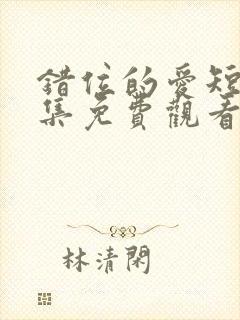 錯位的愛短
集免費觀看
林清閑